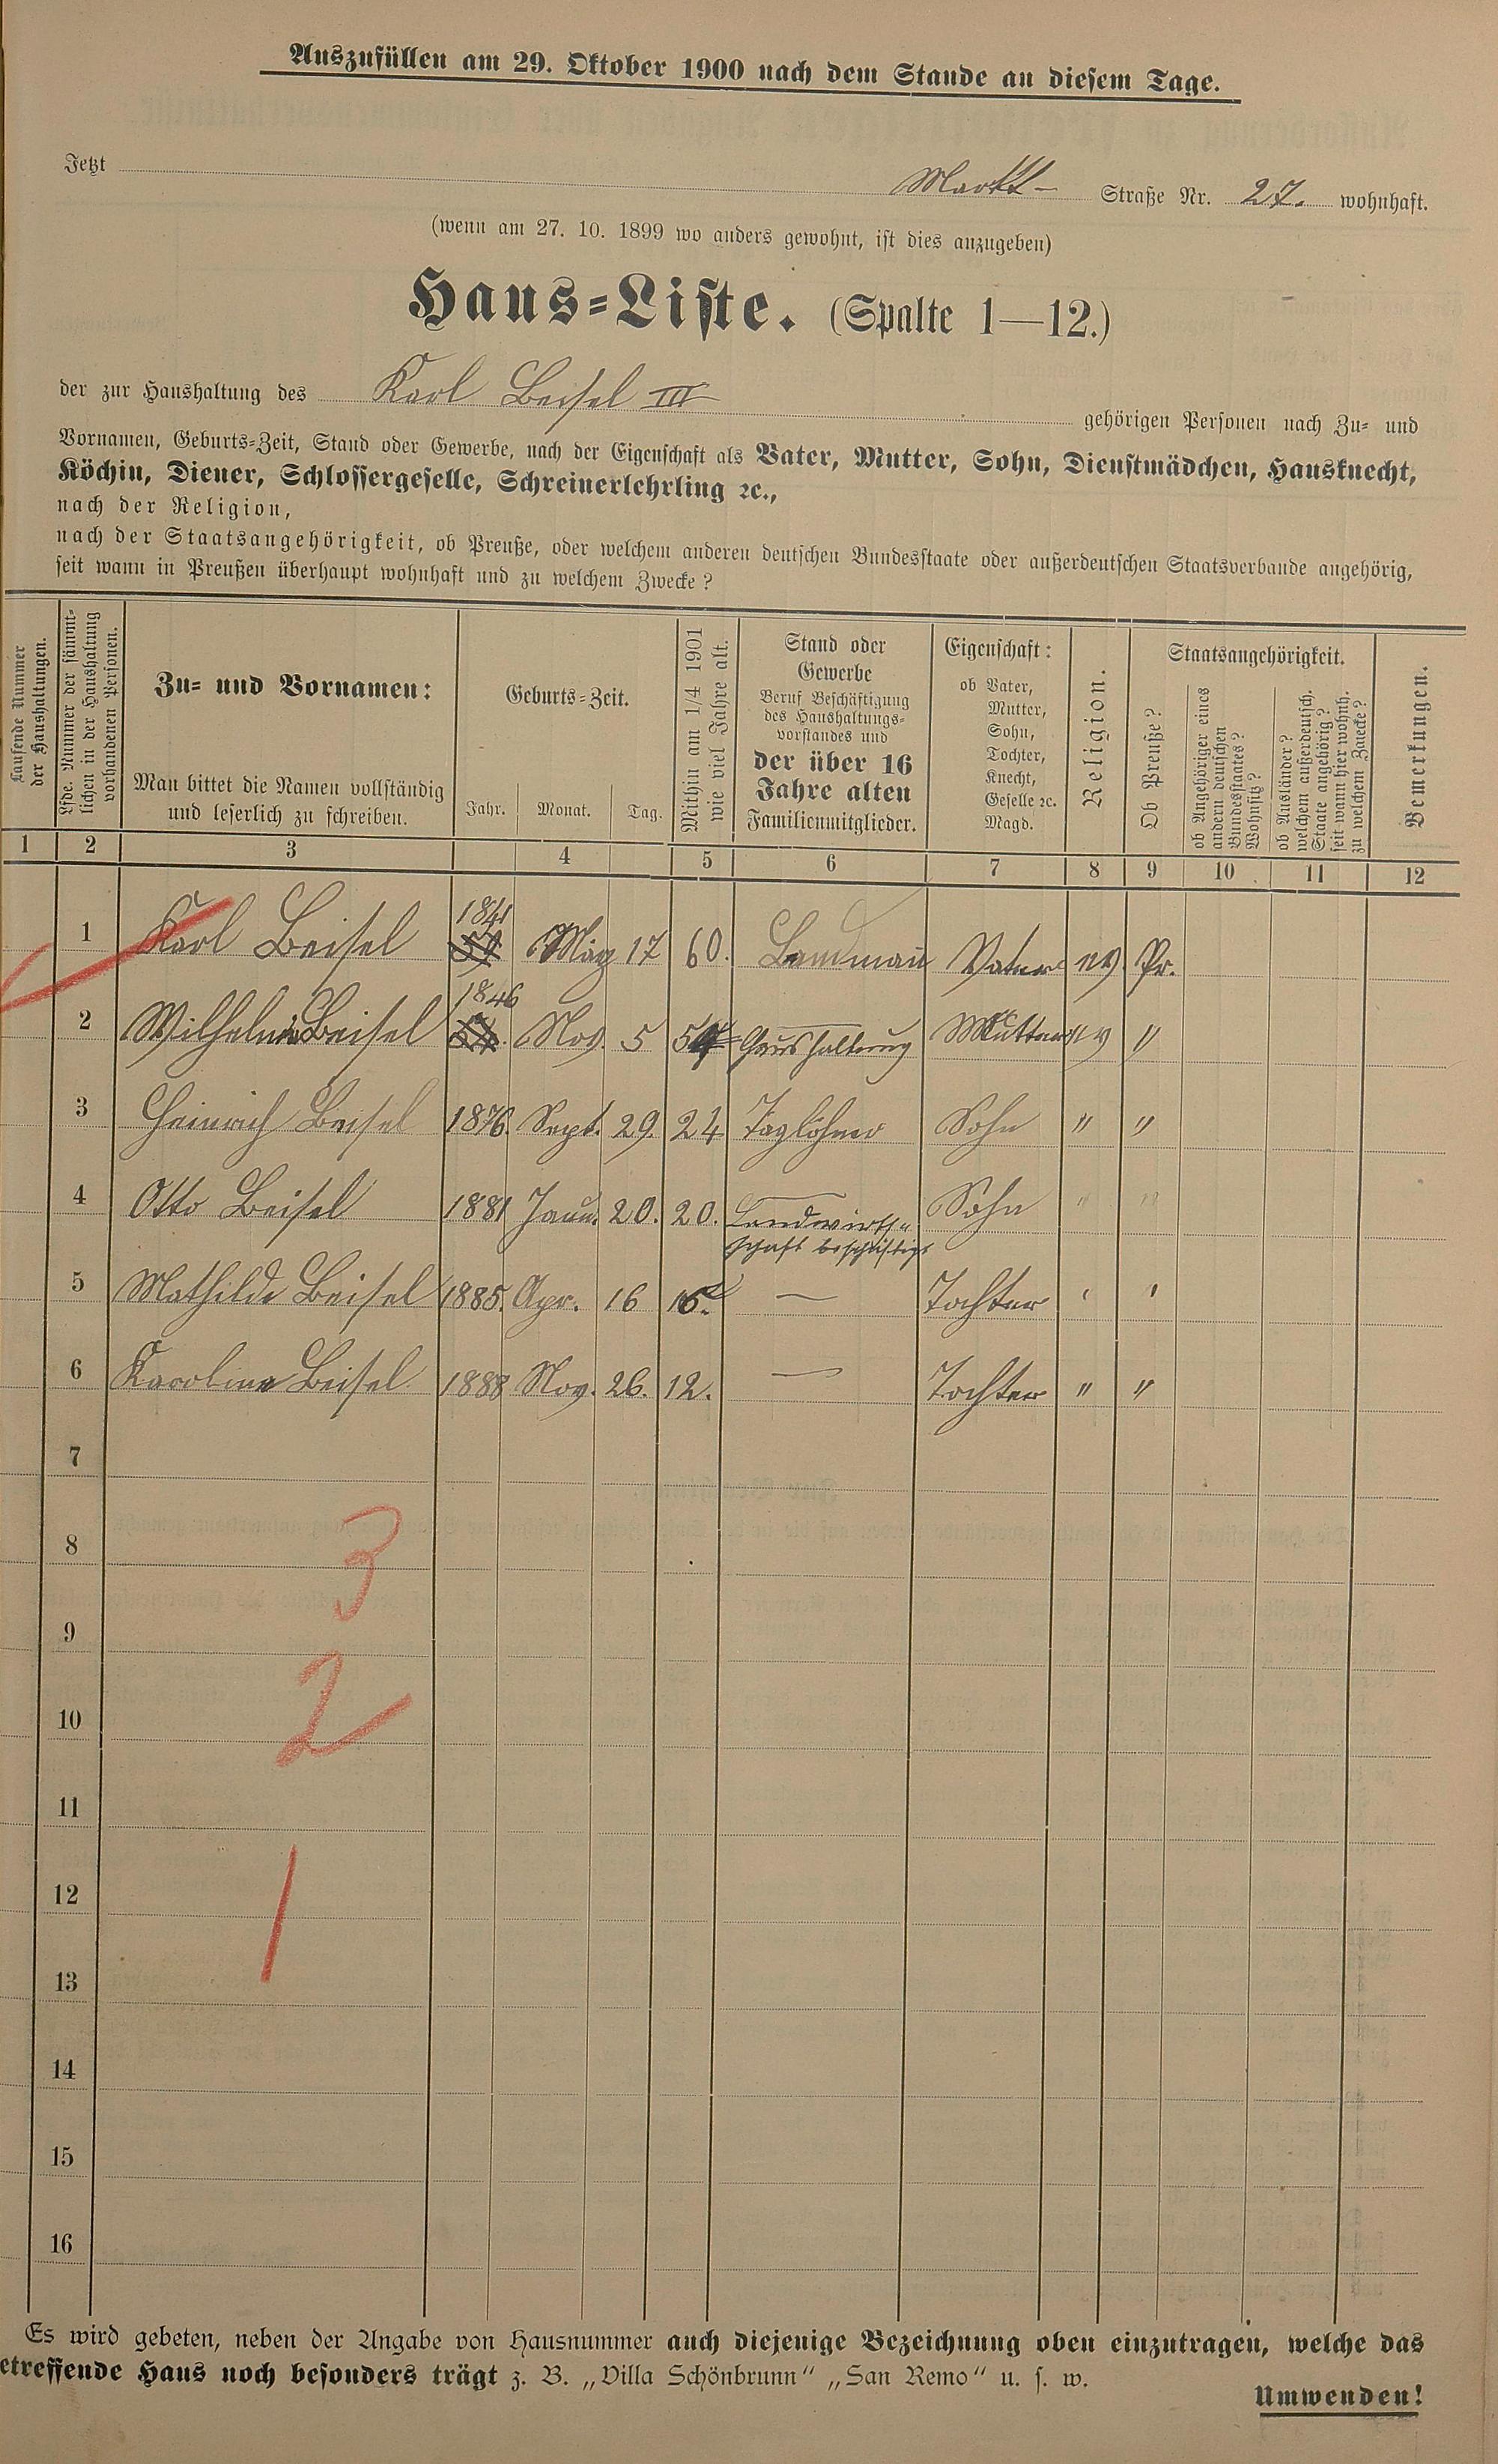 Auszufüllen am 29. Oktober 1900 nach dem Stande an diesem Tage.
Jetzt Markt- Straße Nr. 27. wohnhaft.
(wenn am 27. 10. 1899 wo anders gewohnt, ist dies anzugeben)
Haus-Liste. (Spalte 1—12.)
der zur Haushaltung des Karl Beisel III gehörigen Personen nach Zu- und
Vornamen, Geburts-Zeit, Stand oder Gewerbe, nach der Eigenschaft als Vater, Mutter, Sohn, Dienstmädchen, Hausknecht,
Köchin, Diener, Schlossergeselle, Schreinerlehrling ꝛc.,
nach der Religion,
nach der Staatsangehörigkeit, ob Preuße, oder welchem anderen deutschen Bundesstaate oder außerdeutschen Staatsverbande angehörig,
seit wann in Preußen überhaupt wohnhaft und zu welchem Zwecke?
Laufende Nummer
der Haushaltungen.
Lfde. Nummer der sämmt-
lichen in der Haushaltung
vorhandenen Personen.
Zu- und Vornamen:
Man bittet die Namen vollständig
und leserlich zu schreiben.
Geburts-Zeit.
Jahr. Monat. Tag.
Mithin am 1/4 1901
wie viel Jahre alt.
Stand oder
Gewerbe
Beruf Beschäftigung
des Haushaltungs-
vorstandes und
der über 16
Jahre alten
Familienmitglieder.
Eigenschaft:
ob Vater,
Mutter,
Sohn,
Tochter,
Knecht,
Geselle ꝛc.
Magd.
Religion.
Staatsangehörigkeit.
Ob Preuße?
ob Angehöriger eines
andern deutschen
Bundesstaates?
Wohnsitz?
ob Ausländer?
welchem außerdeutsch.
Staate angehörig?
seit wann hier wohnh.
zu welchem Zwecke?
Bemerkungen.
1 2 3 4 5 6 7 8 9 10 11 12
1 Karl Beisel 1841 März 17 60. Landmann Vater ev. Pr.
2 Wilhelmine Beisel 1846 Nov. 5 54 Haushaltung Mutter ev "
3 Heinrich Beisel 1876. Sept. 29. 24 Taglöhner Sohn " "
4 Otto Beisel 1881 Janu. 20. 20. Landwirth-
schaft beschäftigt Sohn " "
5 Mathilde Beisel 1885. Apr. 16 15. — Tochter " "
6 Karoline Beisel. 1888 Nov. 26. 12. — Tochter " "
7
8
3
9
10
2
11
12
1
13
14
15
16
Es wird gebeten, neben der Angabe von Hausnummer auch diejenige Bezeichnung oben einzutragen, welche das
etreffende Haus noch besonders trägt z. B. „Villa Schönbrunn" „San Remo" u. s. w.
Umwenden!